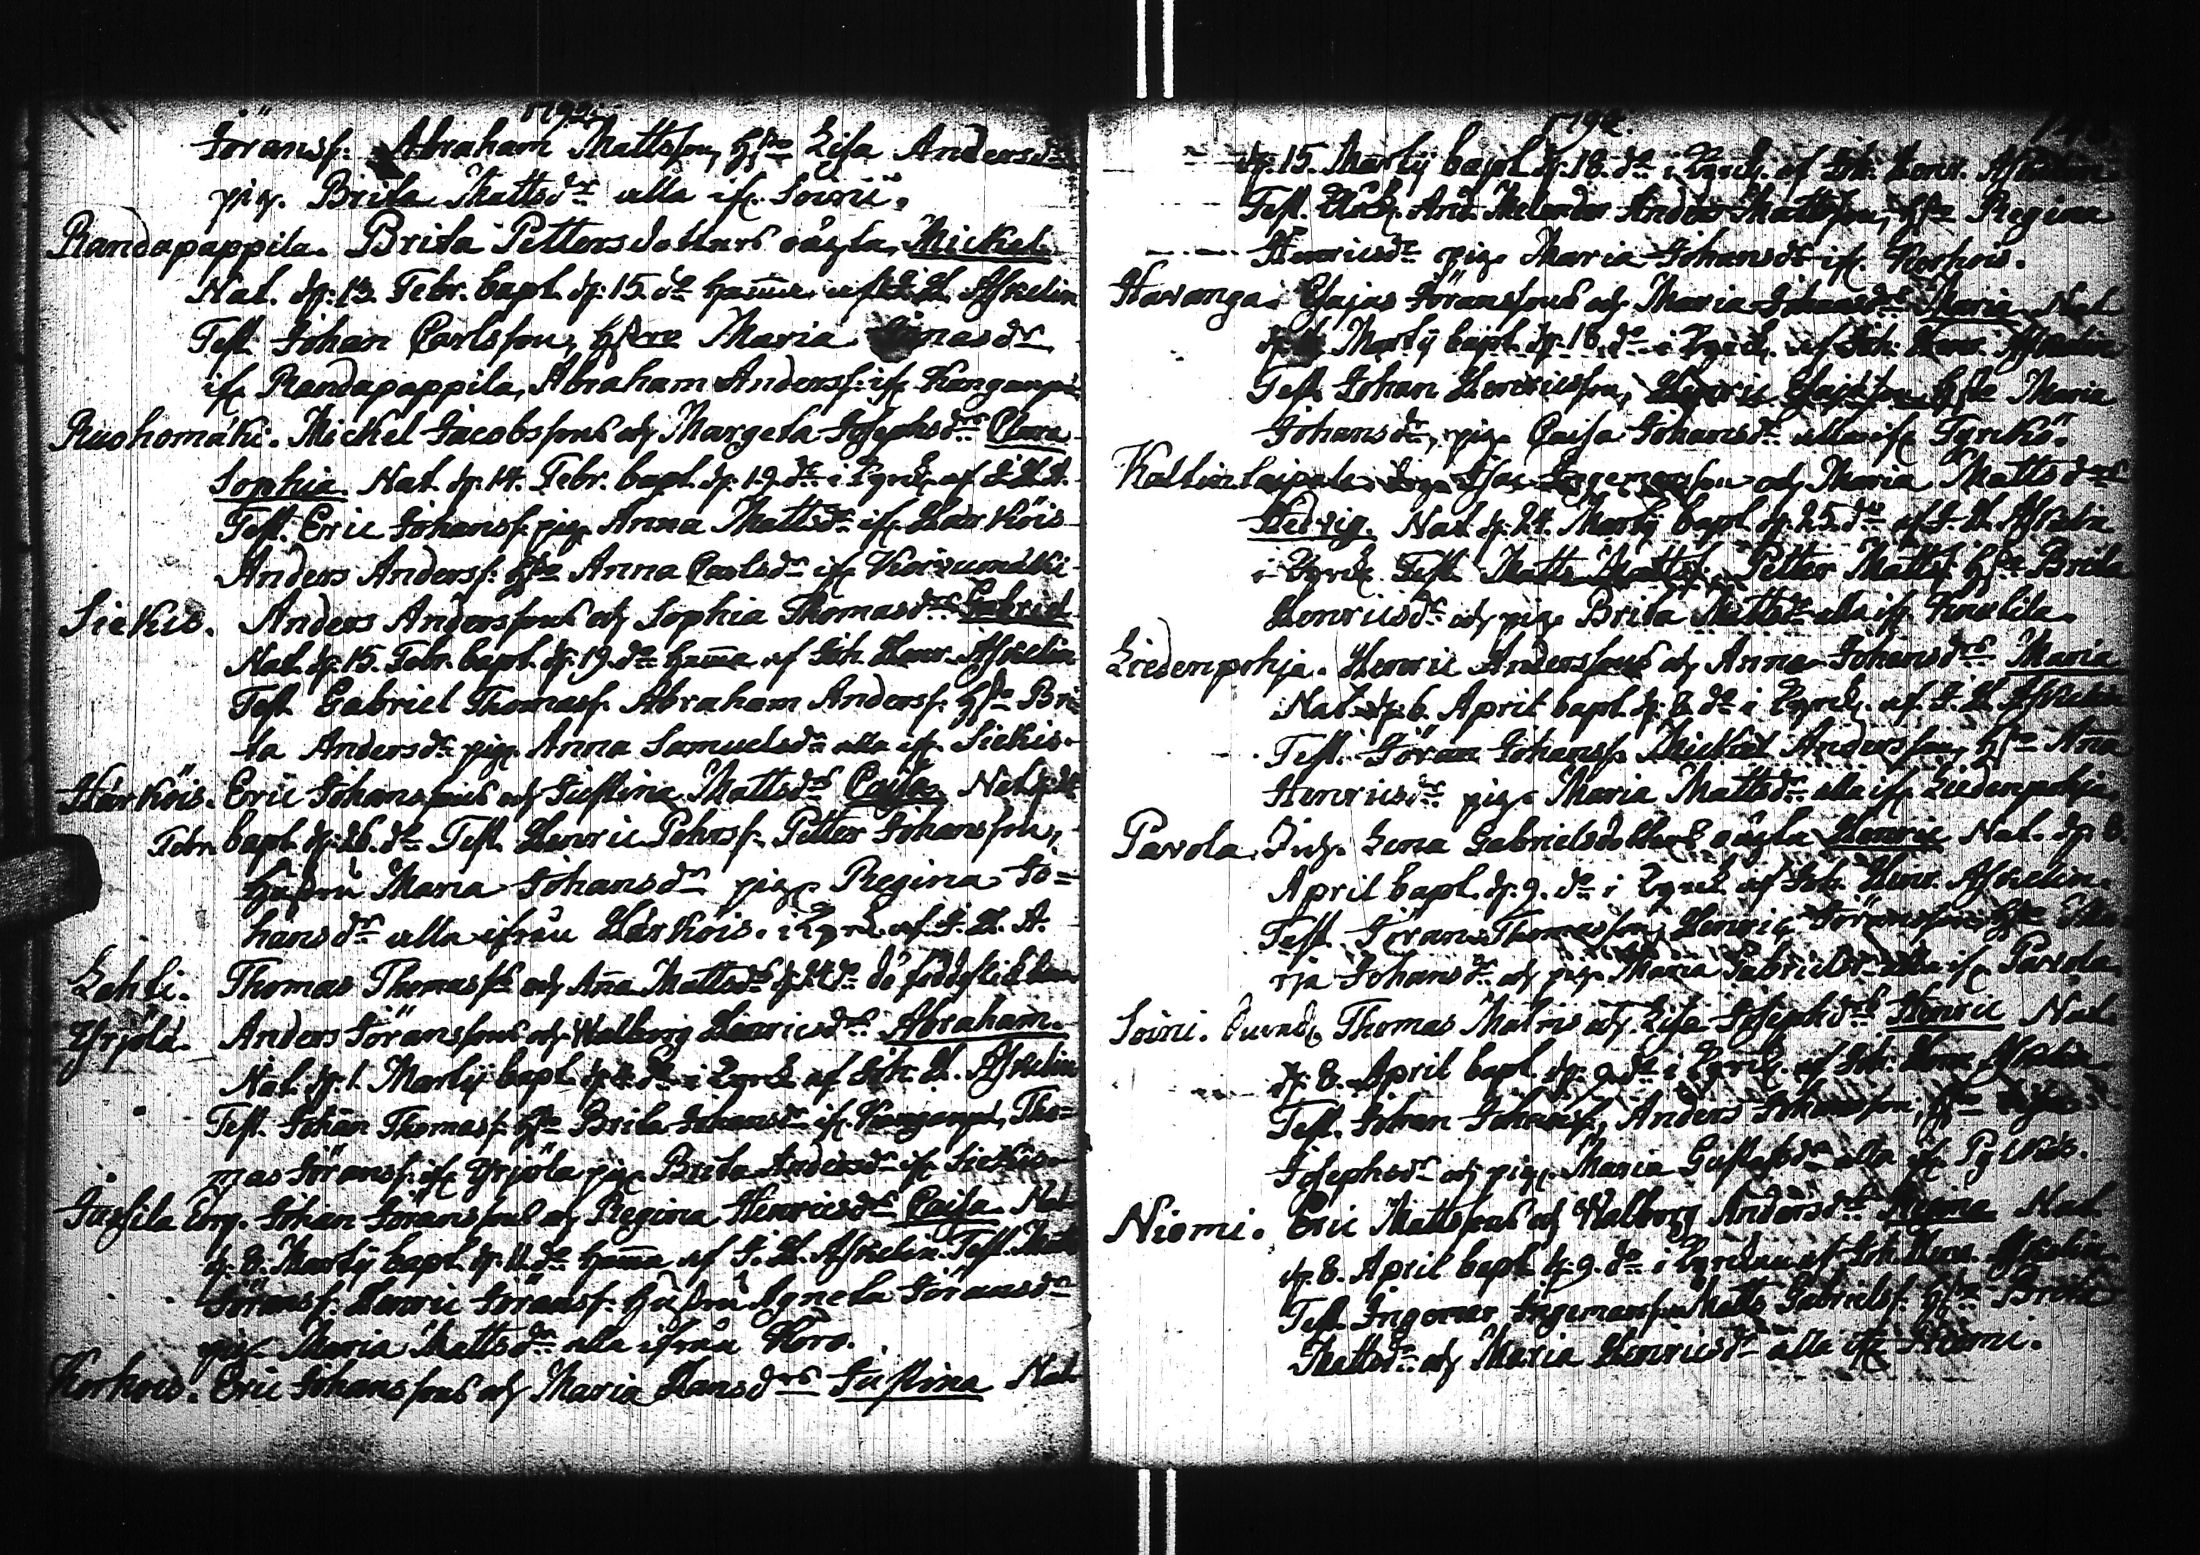 1792.
Göransf. Abraham Mattsson, hstro Lisa Andersdr
pig. Brita Mattsdr alla ifr. Soini.
Randapappila. Brita Pettersdotters oägta Mickel
Nat. d. 13. Febr. bapt. d. 15. do hemma af J. H. Askelin
Test. Johan Carlsson, hstro Maria Jonasdr
ifr Randapappila, Abraham Andersf. ifr Kanganpä
Ruohomäki. Mickel Jacobssons och Margeta Josephsdrs Clara
Sophia. Nat. d. 14. Febr. bapt. d. 19. do i Kyrck. af J. H. A.
Test. Eric Johansf. pig. Anna Mattsdr ifr Härköis
Anders Andersf. hstro Anna Carlsdr ifr Koivumäki
Siekis. Anders Anderssons och Sophia Thomasdrs Gabriel
Nat. d. 15. Febr. bapt. d. 19. do hemma af Joh. Henr. Askelin
Test. Gabriel Thomasf. Abraham Andersf. hstro Bri-
ta Andersdr pig. Anna Samuelsdr alla ifr Siekis.
Härköis. Eric Johanssons och Justina Mattsdrs Caisa. Nat. d.
Febr. bapt. d. 26. do Test. Henric Pehrsf. Petter Johansson,
Hustru Maria Johansdr pig. Regina Jo=
hansdr alla ifrån Härköis. i Kyrck. af J. H. A.
Lahti. Thomas Thomasf. och Anna Mattsdrs d. 24 do dödföddt
Yrjölä. Anders Göranssons och Walborg Henricsdrs Abraham.
Nat. d. 1. Martij bapt. d. 4. do i Kyrck af Joh. H. Askelin
Test. Johan Thomasf. hstro Brita Johansdr ifr. Kanganpä, Tho=
mas Göransf. ifr Yrjölä pig. Brita Andersdr ifr Siekis.
Jussila Eng. Johan Göranssons och Regina Henricsdrs Caisa. Nat
d. 8. Martij bapt. d. 11. do hemma af J. H. Askelin. Test. Matts
Göransf. Henric Göransf. Hustru Agneta Göransdr
pig. Maria Mattsdr alla ifrån Koro.
Korkois. Eric Johanssons och Maria Hansdrs Justina Nat
1792.
d. 15. Martij bapt. d. 18. do i Kyrck. af Joh. Henr. Askelin.
Test. Klock. And. Melander Anders Mattsson, hstro Regina
Henricsdr pig. Maria Johansdr ifr. Korkois.
Havanga. Esajas Göranssons och Maria Johansdrs Maria Nat
d. Martij bapt. d. 18. do i Kyrck. af Joh. Henr. Askelin
Test. Johan Henricsson, Henric Esajsson hstro Maria
Johansdr, pig. Caisa Johansdr alla ifr Tyrikö.
Kaltinlaipale. Isac och Maria Mattsdrs
Hedvig. Nat. d. 24. Martij bapt. d. 25. do af J. H. Askelin
i Kyrck. Test. Matts Mattsf. Petter Mattsf. hstro Brita
Henricsdr och pig. Brita Mattsdr alla ifr.
Liedenpohja. Henric Anderssons och Anna Johansdrs Maria
Nat. d. 6. April bapt. d. 8. do i Kyrck. af J. H. Askelin
Test. Göran Johansf. Mickel Andersson, hstro Anna
Henricsdr pig. Maria Mattsdr alla ifr Liedenpohja.
Pavola. Pig. Lena Gabrielsdotters oägta Henric Nat. d. 8.
April bapt. d. 9. do i Kyrck af Joh. Henr. Askelin.
Test. Göran Thomasson, Henric Göransson, hstro Ma-
ria Johansdr och pig. Maria Gabrielsdr alla ifr Pavola.
Soini. Thomas Malms och Lisa Josephdrs Henric Nat.
d. 8. April bapt. d. 9. do i Kyrck. af Joh. Henr. Askelin
Test. Johan Johansf, Anders Johansson, hstro Lisa
Josephsdr och pig. Maria Gustafsdr alla ifr
Niemi. Eric Mattssons och Walborg Andersdrs Regina Nat
d. 8. April bapt. d. 9. do i Kyrckan af Joh. Henr. Askelin.
Test. Ingemar Ingemarsson Matts Gabrielsf. hstro Brita
Mattsdr och Maria Henricsdr alla ifr Niemi.